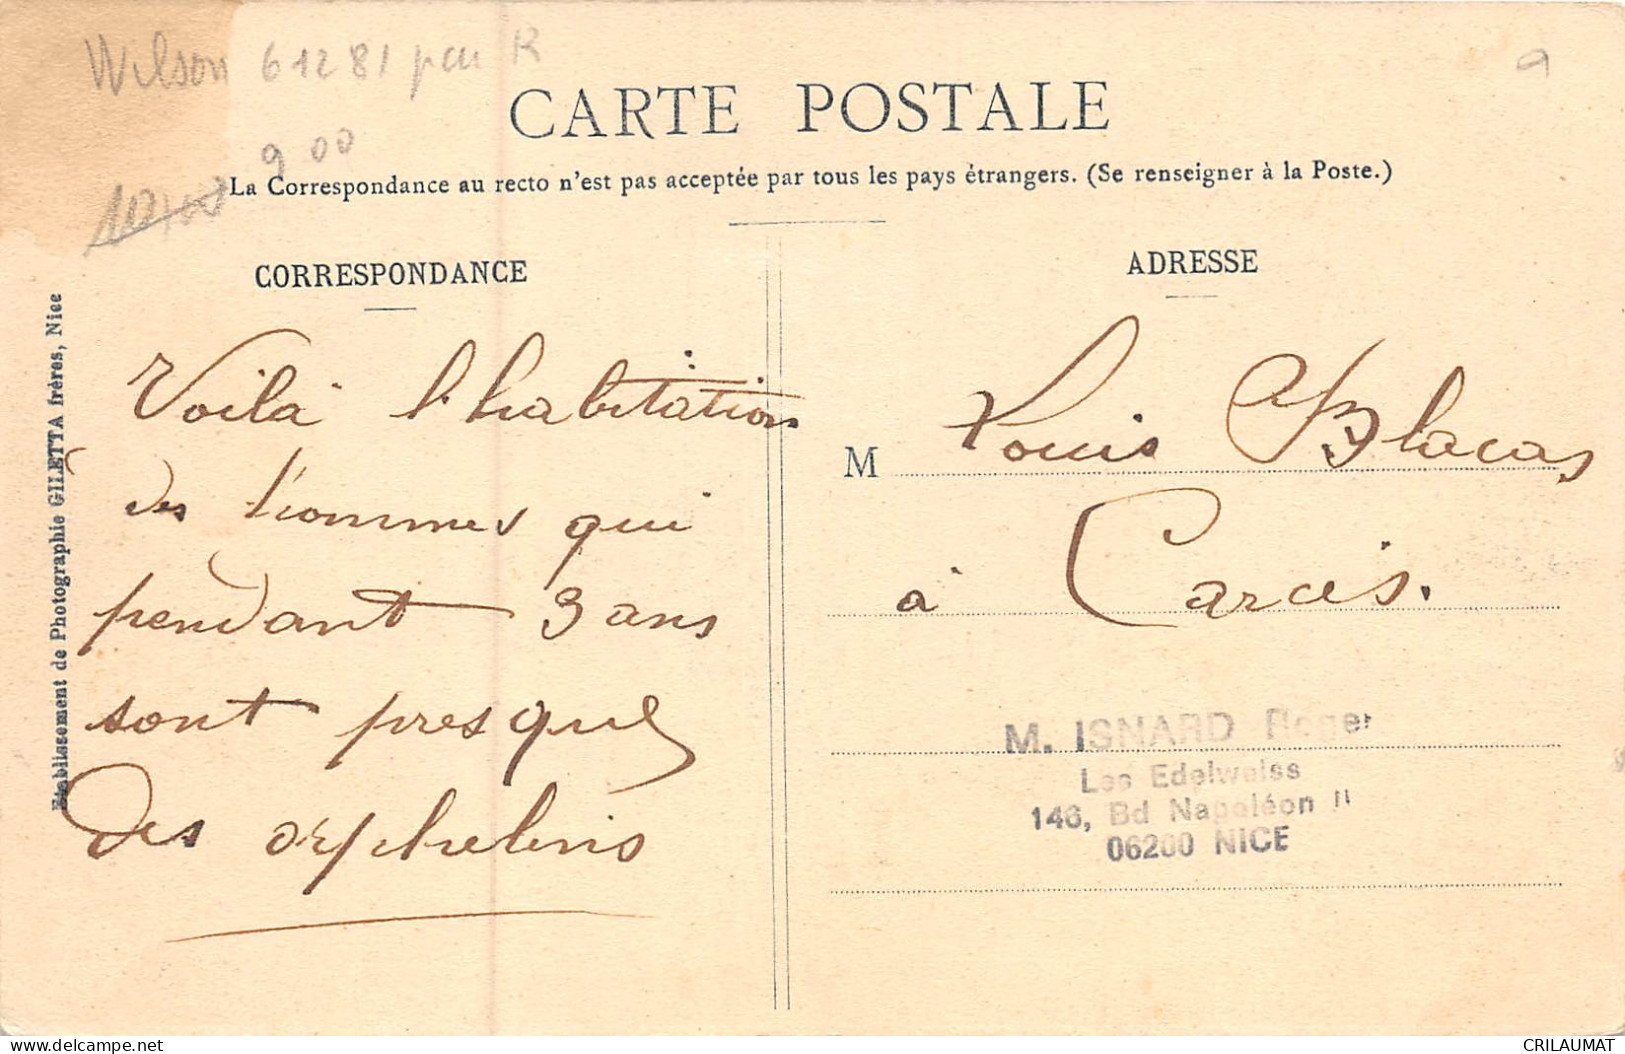 Wilson 61281 peu R
9
CARTE POSTALE
9 00
La Correspondance au recto n'est pas acceptée par tous les pays étrangers. (Se renseigner à la Poste.)
CORRESPONDANCE
ADRESSE
Etablissement de Photographie GILETTA frères, Nice
Voilà l'habitation
des hommes qui
pendant 3 ans
sont presque
des orphelins
M Louis Blacas
à Carcès.
M. ISNARD Roger
Les Edelweiss
146, Bd Napoléon II
06200 NICE
delcampe.net
CRILAUMAT